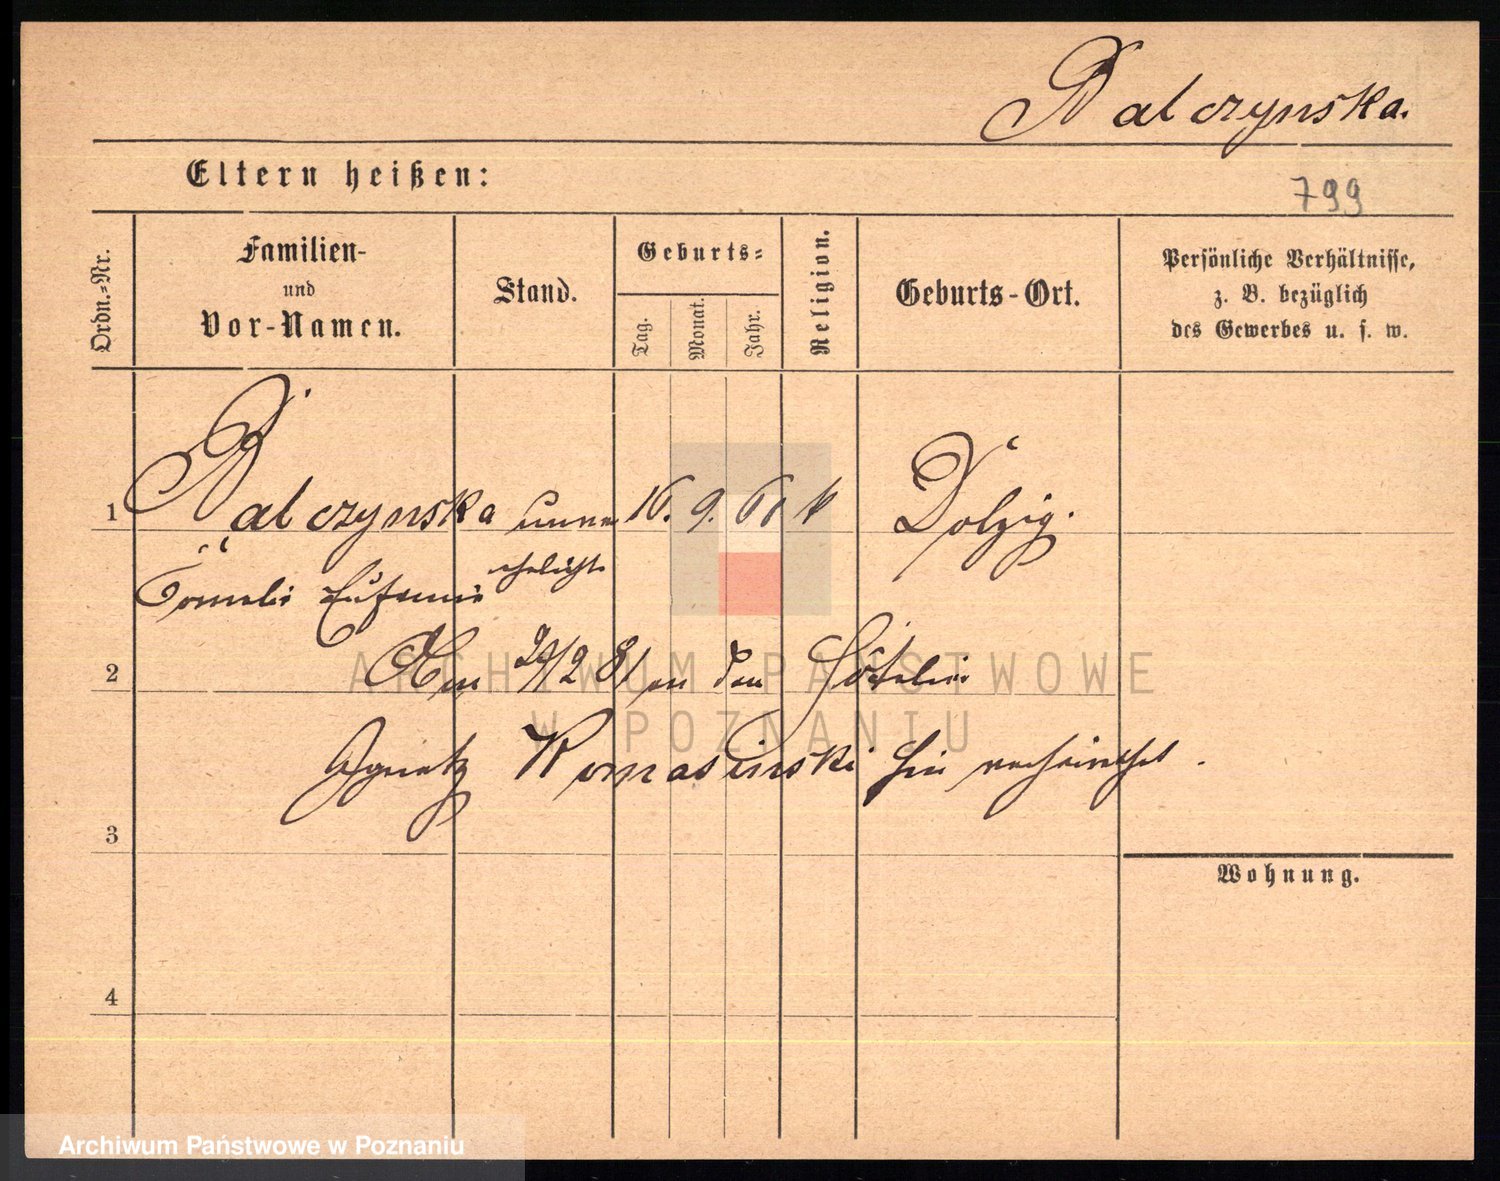 Balczynska.
Eltern heißen:
799
Ordn.-Nr.
Familien-
und
Vor-Namen.
Stand.
Geburts-
Tag.
Monat.
Jahr.
Religion.
Geburts-Ort.
Persönliche Verhältnisse,
z. B. bezüglich
des Gewerbes u. s. w.
1
Balczynska unver 16. 9. 60 k Dolzig.
ehelicht
Cornelie Eufemie
2
Am 24/2 81 an den
Ignatz Romasinski hier verheirathet.
3
Wohnung.
4
ARCHIWUM PAŃSTWOWE
W POZNANIU
Archiwum Państwowe w Poznaniu